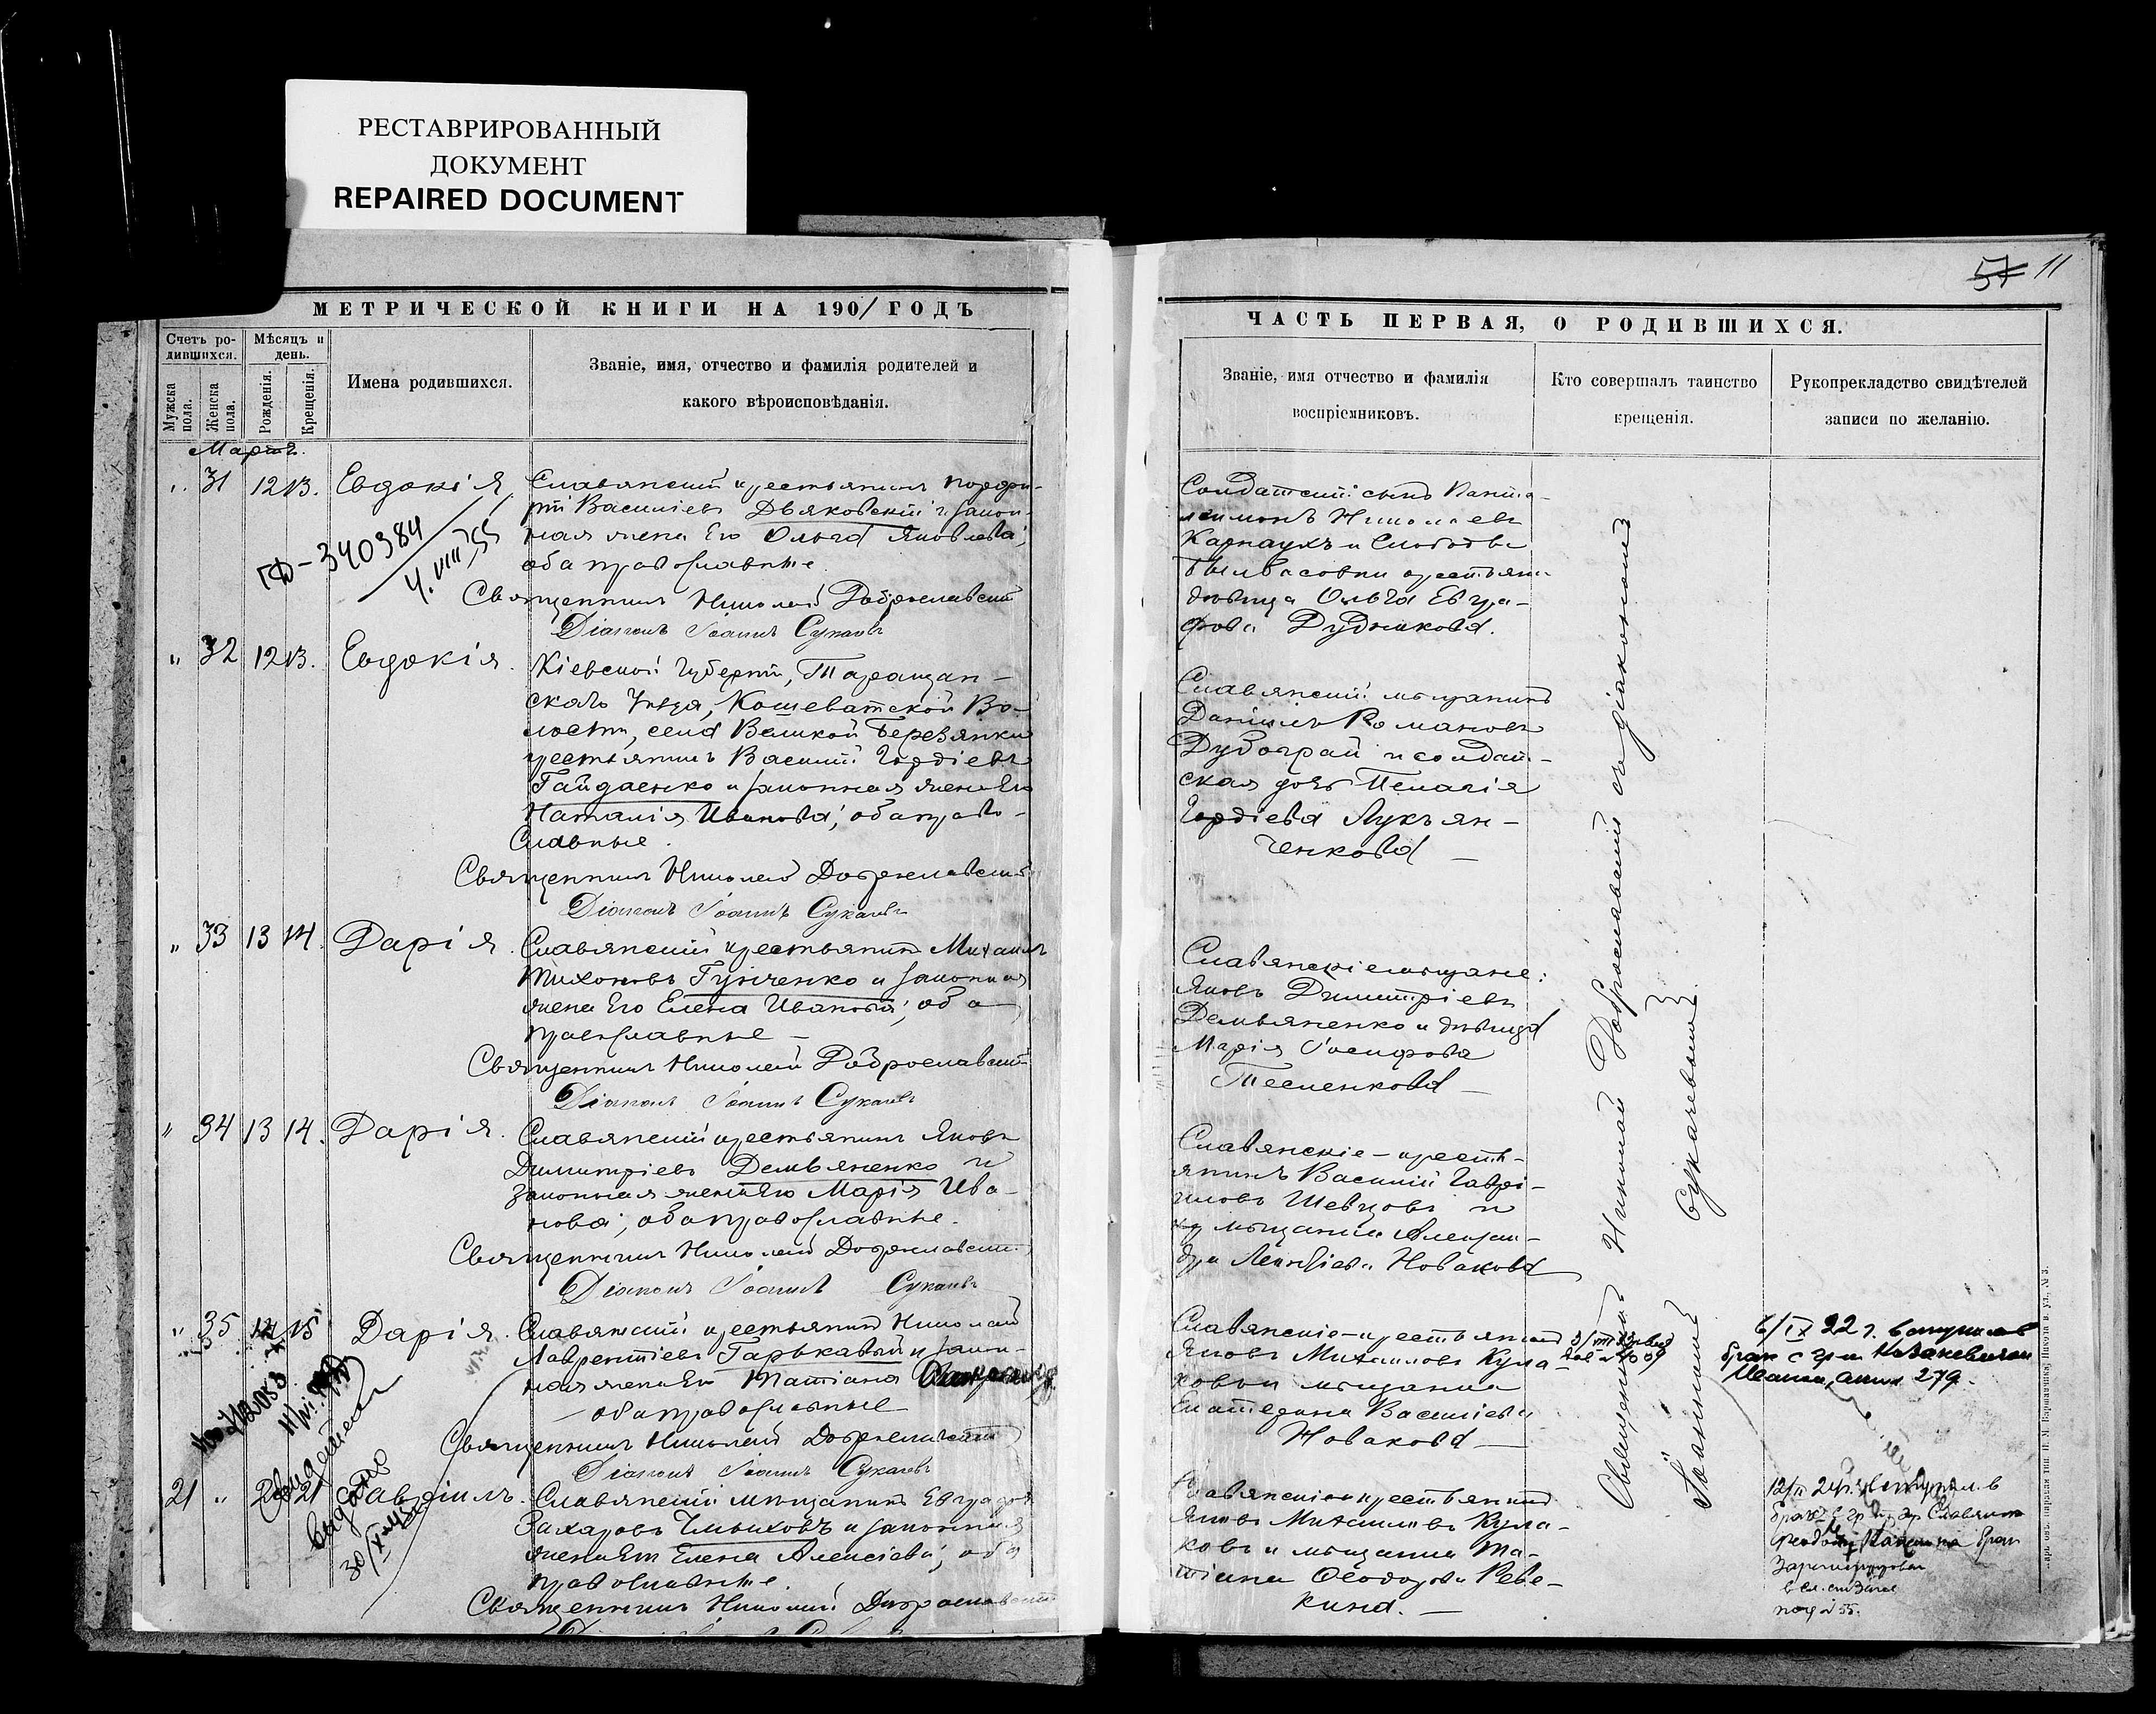 РЕСТАВРИРОВАННЫЙ
ДОКУМЕНТ
REPAIRED DOCUMENT
МЕТРИЧЕСКОЙ КНИГИ НА 1901 ГОДЪ
Счетъ ро-
дившихся.
Мѣсяцъ и
день.
Мужска
пола.
Женска
пола.
Рожденія.
Крещенія.
Имена родившихся.
Званіе, имя, отчество и фамилія родителей и
какого вѣроисповѣданія.
Мартъ.
„ 31 12 13. Евдокія
Славянскій крестьянинъ Порфи-
рій Василіевъ Дьяковскій и закон-
ная жена его Ольга Яковлева,
оба православные.
Священникъ Николай Доброславскій
Діаконъ Іоаннъ Сукачевъ
ГФ-340384
4.VIII 55
„ 32 12 13. Евдокія.
Кіевской Губерніи, Таращан-
скаго Уѣзда, Кошеватской Во-
лости, села Великой Березянки
крестьянинъ Василій Гордіевъ
Гайдаенко и законная жена его
Наталія Иванова, оба право-
славные.
Священникъ Николай Доброславскій
Діаконъ Іоаннъ Сукачевъ
„ 33 13 14. Дарія.
Славянскій крестьянинъ Михаилъ
Тихоновъ Гунченко и законная
жена его Елена Иванова, оба
православные –
Священникъ Николай Доброславскій
Діаконъ Іоаннъ Сукачевъ
„ 34 13 14. Дарія.
Славянскій крестьянинъ Яковъ
Димитріевъ Демьяненко и
законная жена его Марія Ива-
нова, оба православные.
Священникъ Николай Доброславскій
Діаконъ Іоаннъ Сукачевъ
„ 35 15 Дарія.
Славянскій крестьянинъ Николай
Лаврентіевъ Гарькавый и закон-
ная жена его Татіана
оба православные
Священникъ Николай Доброславскій
Діаконъ Іоаннъ Сукачевъ
21 „ 21 Гавріилъ.
Славянскій мѣщанинъ Евграфъ
Захаровъ и законная
жена его Елена Алексіева, оба
православные.
Священникъ Николай Доброславскій
57 11
ЧАСТЬ ПЕРВАЯ, О РОДИВШИХСЯ.
Званіе, имя отчество и фамилія
воспріемниковъ.
Кто совершалъ таинство
крещенія.
Рукоприкладство свидѣтелей
записи по желанію.
Солдатскій сынъ Панте-
леимонъ Николаевъ
Карнаухъ и Слободы
Былбасовки крестьян.
дѣвица Ольга Евгра-
фова Дудникова.
Славянскій мѣщанинъ
Даніилъ Романовъ
Дубограй и солдат-
ская дочь Пелагія
Гордіева Лукъян-
ченкова –
Славянскіе мѣщане:
Яковъ Димитріевъ
Демьяненко и дѣвица
Марія Іосифова
Тесленкова –
Славянскіе – крестъ-
янинъ Василій Гаврі-
иловъ Шевцовъ и
мѣщанка Алексан-
дра Новакова
Славянскіе – крестьянинъ
Яковъ Михаиловъ Кула-
ковъ и мѣщанка
Екатерина Василіева
Новакова –
Славянскіе крестьянинъ
Яковъ Михаиловъ Кула-
ковъ и мѣщанка Та-
тіана Ѳеодорова Реве-
кина. –
Священникъ Николай Доброславскій съ діакономъ
Іоанномъ Сукачевымъ.
6/IX 22 г. вступила в
брак с гр-м Казакевичем
279.
12/II 24 г. вступил в
брак с гр
брак
Зарегистрирован
под № 55.